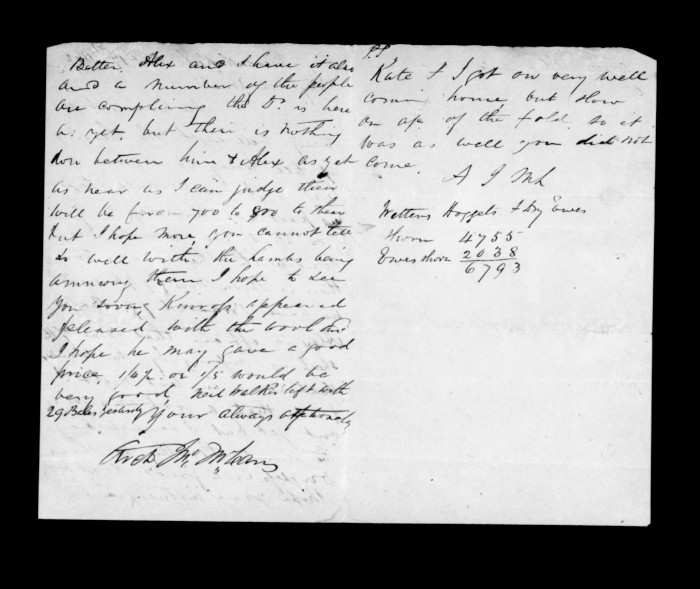 Better. Alex and I have it also
and a number of the people
are complining the Dr. is here
as yet, but their is nothing
don between him & Alex as yet
as near as I can judge their
will be from 700 to 800 to shear
but I hope more, you cannot tell
so well with the lambs being
amnong them I hope to see
you soon, Kinross appeared
pleased with the wool and
I hope he may gave a good
price, 1/4½ or 1/5 would be
very good, Neil Walker left with
29 Bales yesterday Your always affectionately
Arch Mc
P.S.
Kate & I got on very well
coming home, but slow
on ac. of the fold. so it
was as well you did not
come.
A J McL
Wethers Hoggets & Dry Ewes
shorn 4755
Ewes shorn 2038
6793